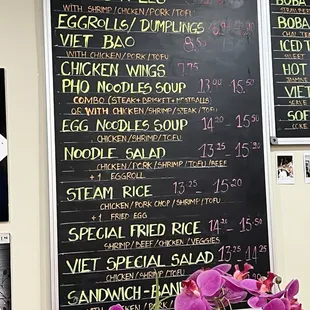 WITH SHRIMP/CHICKEN/PORK/TOFU
EGGROLLS/DUMPLINGS
VIET BAO 8.50
WITH CHICKEN/PORK/TOFU
CHICKEN WINGS 7.75
PHO NOODLES SOUP 13.00 - 15.50
COMBO (STEAK+BRISKET+MEATBALLS)
OR WITH CHICKEN/SHRIMP/STEAK/TOFU
EGG NOODLES SOUP 14.20 - 15.50
CHICKEN/SHRIMP/TOFU
NOODLE SALAD 13.25 - 15.50
CHICKEN/PORK/SHRIMP/TOFU/BEEF
+ 1 EGGROLL
STEAM RICE 13.25 - 15.20
CHICKEN/PORK CHOP/SHRIMP/TOFU
+ 1 FRIED EGG
SPECIAL FRIED RICE 14.20 - 15.50
SHRIMP/BEEF/CHICKEN/VEGGIES
VIET SPECIAL SALAD 13.25 - 14.25
CHICKEN/SHRIMP/TOFU
SANDWICH-BAN
BOBA
BOBA
ICED T
HOT
VIET
SOF